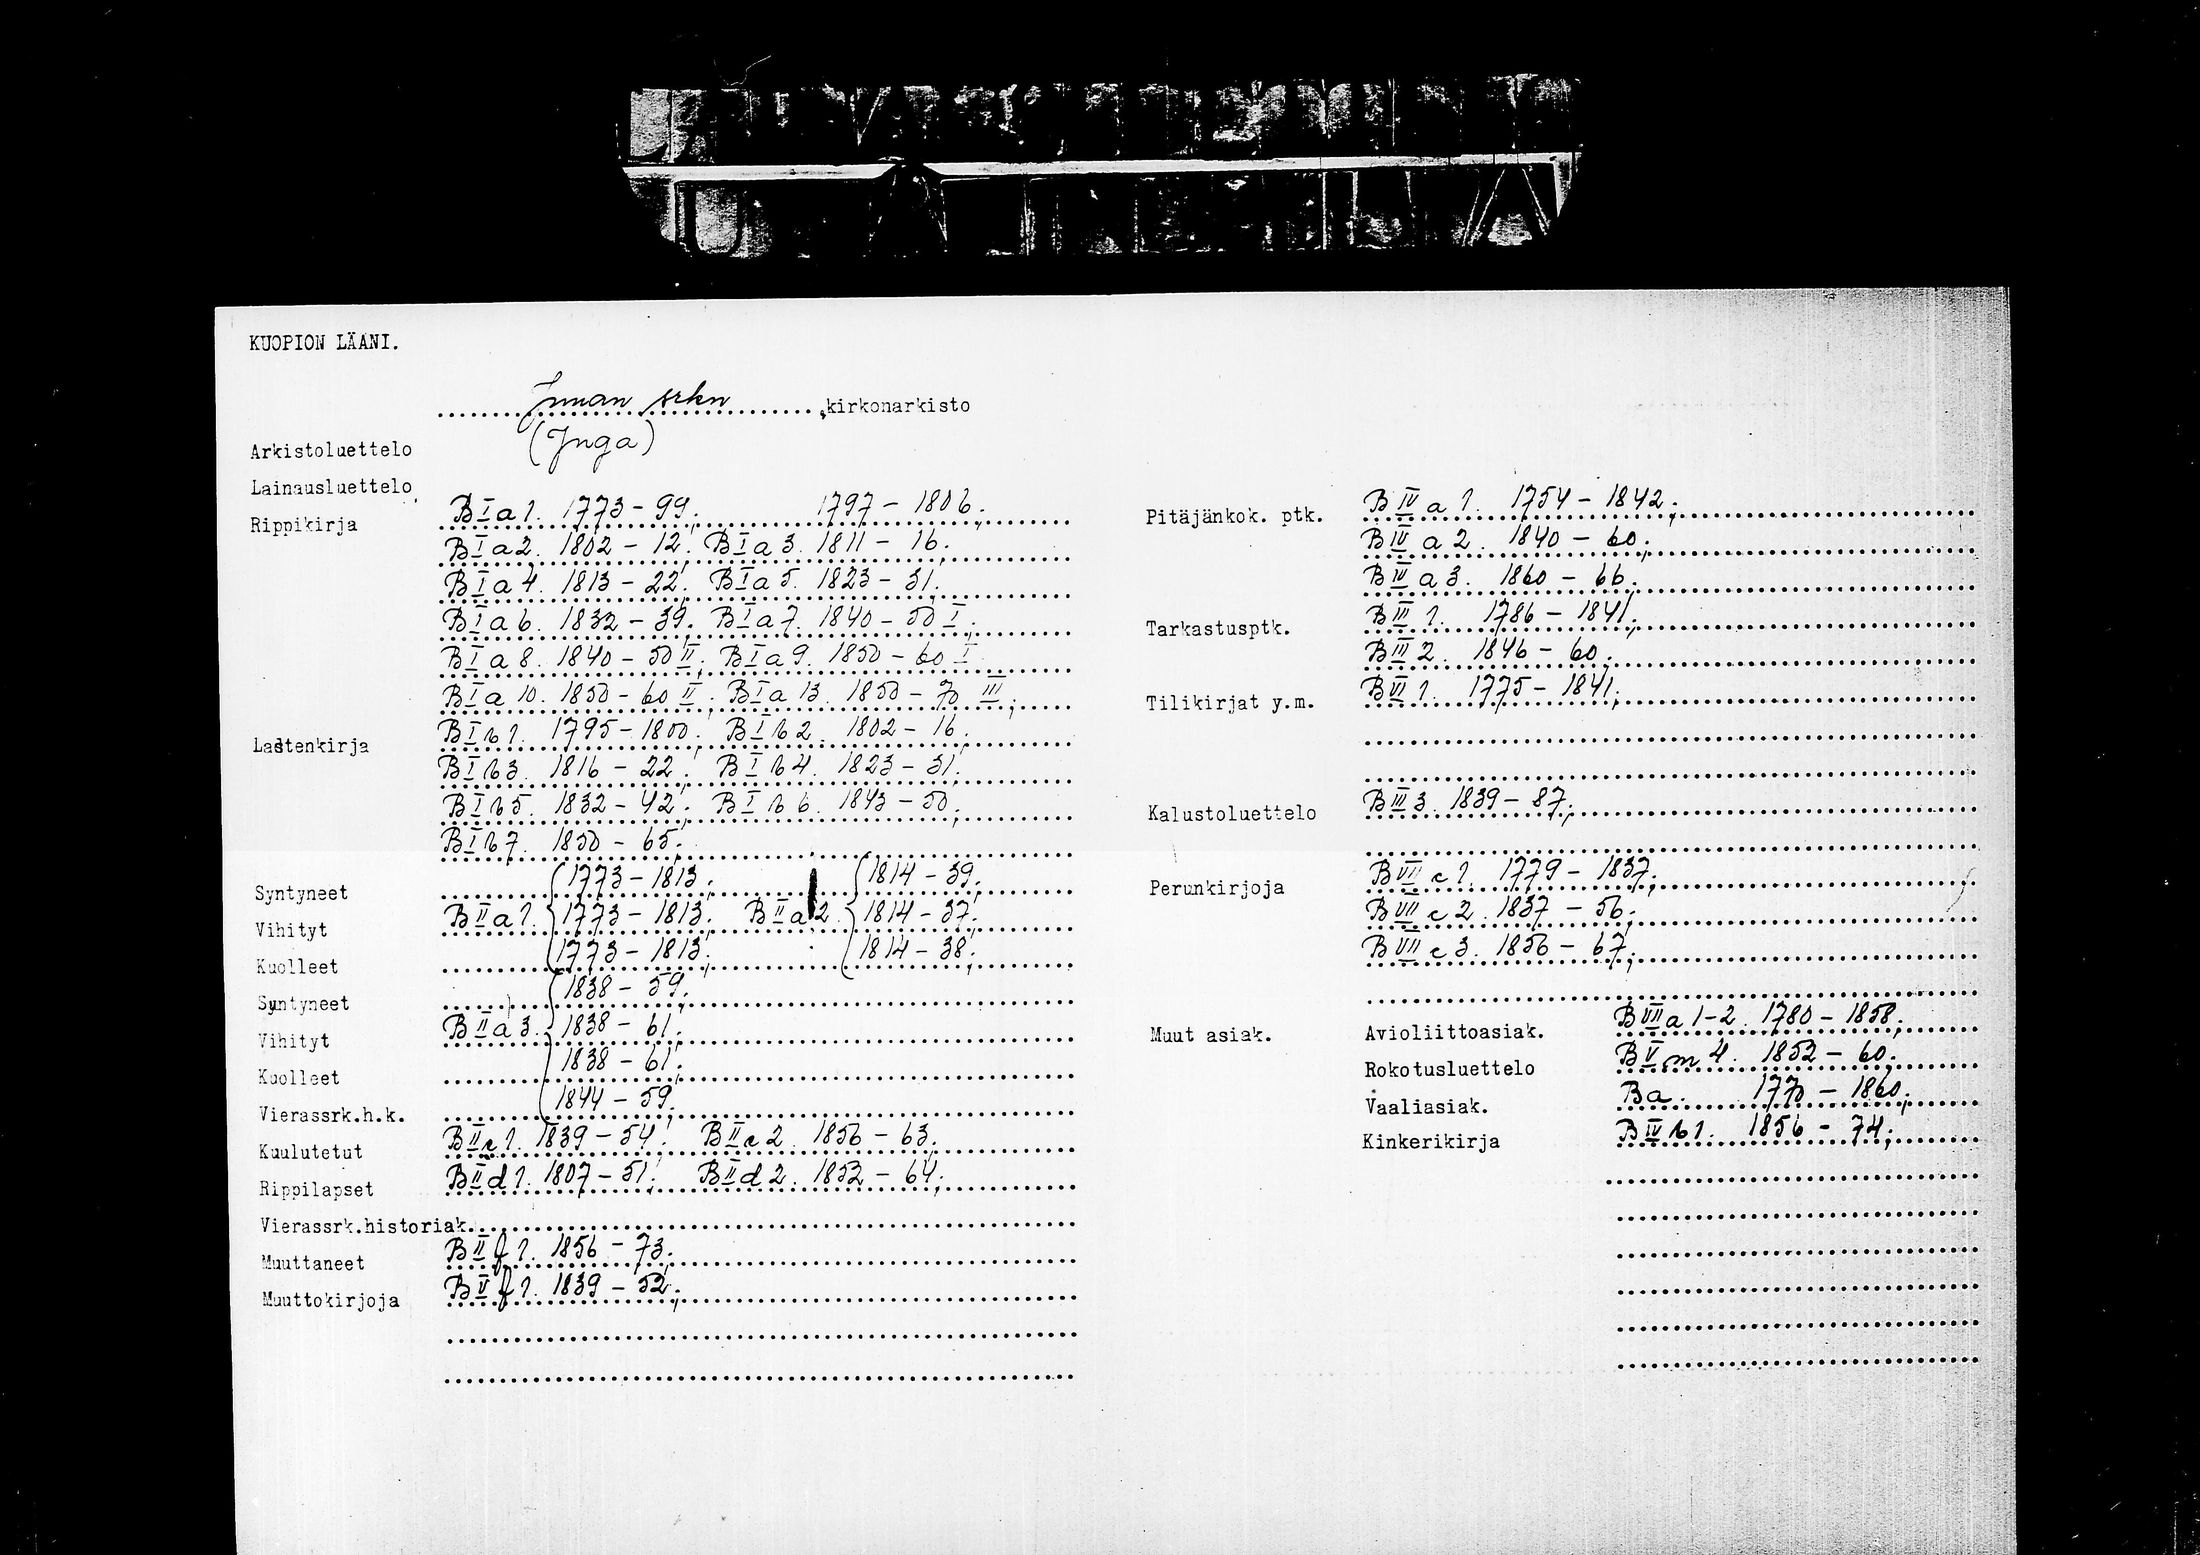 KUOPION LÄANI.
Junan srkn kirkonarkisto
(Jnga)
Arkistoluettelo
Lainausluettelo
Rippikirja B I a 1. 1773-99. 1797-1806.
B I a 2. 1802-12. B I a 3. 1811-16.
B I a 4. 1813-22. B I a 5. 1823-31.
B I a 6. 1832-39. B I a 7. 1840-50 I.
B I a 8. 1840-50 II. B I a 9. 1850-60 I
B I a 10. 1850-60 II. B I a 13. 1850-70 III.
Lastenkirja B I b 1. 1795-1800. B I b 2. 1802-16.
B I b 3. 1816-22. B I b 4. 1823-31.
B I b 5. 1832-42. B I b 6. 1843-50.
B I b 7. 1850-65.
Syntyneet 1773-1813. 1814-39.
Vihityt B II a 1. 1773-1813. B II a 2. 1814-37.
Kuolleet 1773-1813. 1814-38.
Syntyneet 1838-59.
Vihityt B II a 3. 1838-61.
Kuolleet 1838-61.
Vierassrk.h.k. 1844-59.
Kuulutetut B II c 1. 1839-54. B II c 2. 1856-63.
Rippilapset B II d 1. 1807-51. B II d 2. 1852-64.
Vierassrk.historiak.
Muuttaneet B II f 1. 1856-73.
Muuttokirjoja B V f 1. 1839-52.
Pitäjänkok. ptk. B IV a 1. 1754-1842.
B IV a 2. 1840-60.
B IV a 3. 1860-66.
Tarkastusptk. B III 1. 1786-1841.
B III 2. 1846-60.
Tilikirjat y.m. B VI 1. 1775-1841.
Kalustoluettelo B III 3. 1839-87.
Perunkirjoja B VII c 1. 1779-1837.
B VII c 2. 1837-56.
B VII c 3. 1856-67.
Muut asiak. Avioliittoasiak. B VII a 1-2. 1780-1858.
Rokotusluettelo B V m 4. 1852-60.
Vaaliasiak. Ba. 1770-1860.
Kinkerikirja B IV b 1. 1856-74.